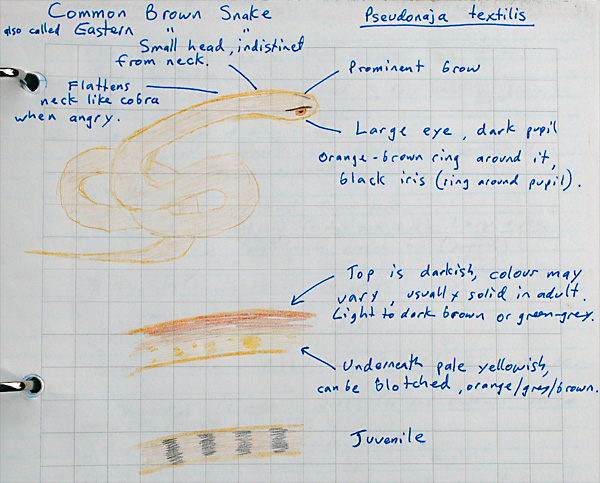 Common Brown Snake
also called Eastern " "
Pseudonaja textilis
Small head, indistinct
from neck.
Prominent brow
Flattens
neck like cobra
when angry.
Large eye, dark pupil
orange-brown ring around it,
black iris (ring around pupil).
Top is darkish, colour may
vary, usually solid in adult.
Light to dark brown or green-grey.
Underneath pale yellowish,
can be blotched, orange/grey/brown.
Juvenile